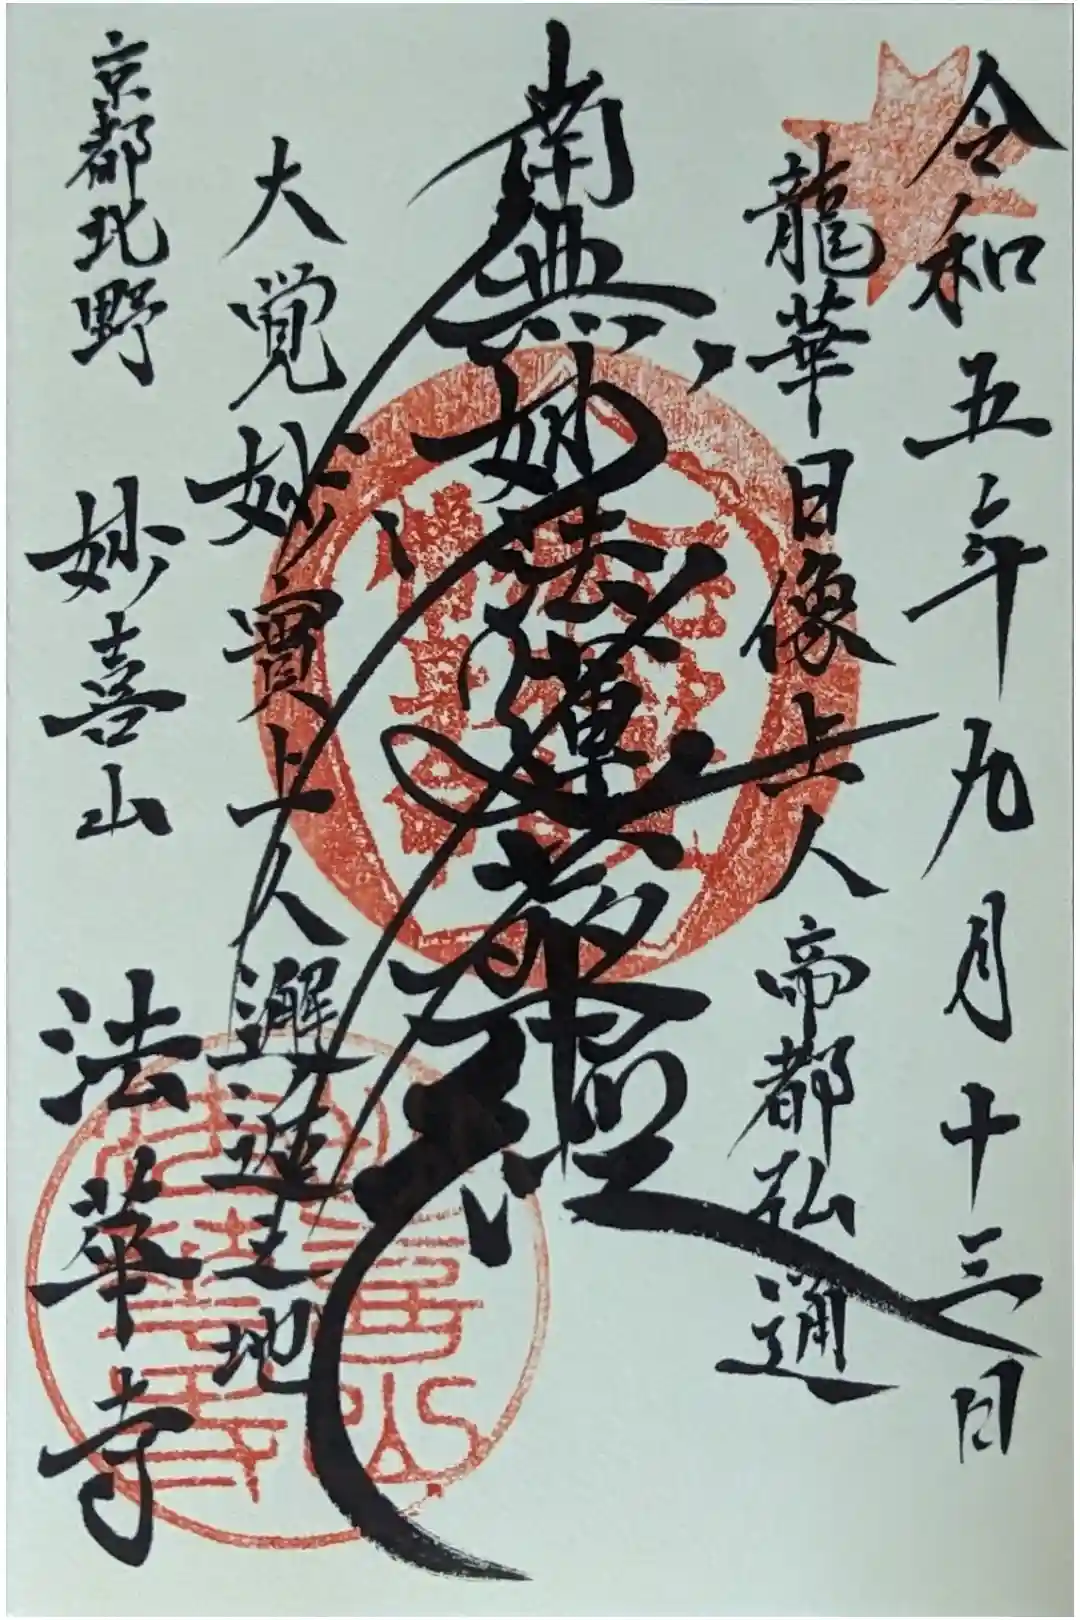 令和五年九月十三日
龍華日像上人帝都弘通
南無妙法蓮華経
大覚妙實上人邂逅之地
京都北野 妙喜山 法華寺